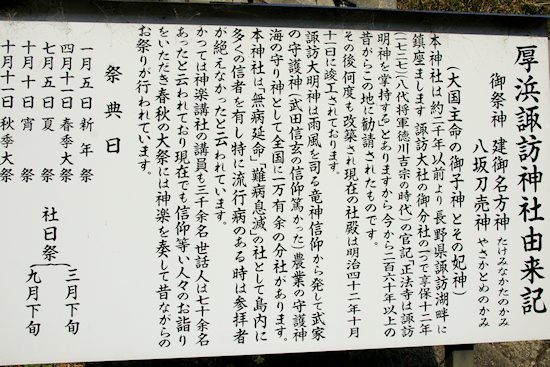 厚浜諏訪神社由来記
御祭神 建御名方神 たけみなかたのかみ
八坂刀売神 やさかとめのかみ
(大国主命の御子神とその妃神)
本神社は約二千年以前より長野県諏訪湖畔に
鎮座まします諏訪大社の御分社の一つで享保十二年
(一七二七)八代将軍徳川吉宗の時代)の官記「正法寺は諏訪
明神を掌持する」とありますから今から二百六十年以上の
昔からこの地に勧請されたものです。
その後何度も改築され現在の社殿は明治四十二年十月
十一日に竣工されております。
諏訪大明神は雨風を司る竜神信仰から発して武家
の守護神(武田信玄の信仰篤かった)農業の守護神
海の守り神として全国に一万有余の分社があります。
本神社は「無病延命」「難病息滅」の社として島内に
多くの信者を有し特に流行病のある時は参拝者
が絶えなかったと云われています。
かつては神楽講社の講員も三千余名世話人は七十余名
あったと云われており現在でも信仰等い人々のお詣り
をいただき春秋の大祭には神楽を奏して昔ながらの
お祭りが行われています。
祭典日
一月五日新年祭
四月十一日春季大祭
七月五日夏祭
十月十日宵祭
十月十一日秋季大祭
社日祭
三月下旬
九月下旬